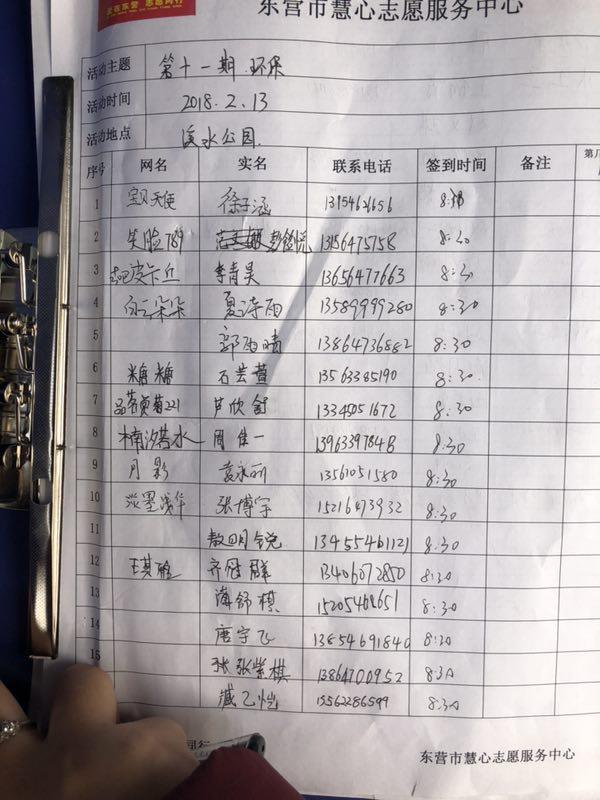 爱在东营 志愿同行
东营市慧心志愿服务中心
活动主题 第十一期.环保
活动时间 2018.2.13
活动地点 溪水公园.
序号 网名 实名 联系电话 签到时间 备注 第几
1 宝贝天使 徐子涵 1315462656 8:30
2 笑脸789 13156475758 8:30
3 皮卡丘 李青昊 13656477663 8:30
4 白云朵朵 夏诗雨 13589999280 8:30
5 郭雨晴 13864736882 8:30
6 糖糖 石芸萱 13563385190 8:30
7 品茗黄菊221 芦欣 13345051672 8:30
8 楠汐若水 周佳一 8:30
9 月影 袁永利 13561051580 8:30
10 淡墨浅华 张博宇 15216473932 8:30
11 敖明锐 13455461121 8:30
12 王其 齐冠群 13406072850 8:30
13 海舒棋 8:30
14 唐宇飞 13854691840 8:30
15 张紫棋 13864700952 8:30
臧乙恺 15562286599 8:30
东营市慧心志愿服务中心